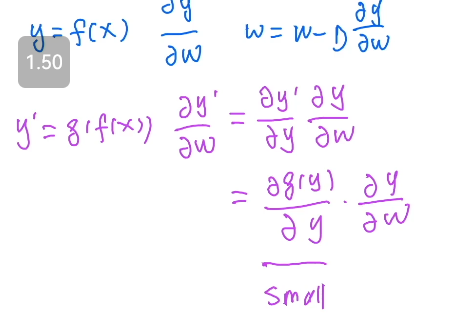 y = f(x) ∂y/∂w w = w - D ∂y/∂w
1.50
y' = g(f(x)) ∂y'/∂w = ∂y'/∂y ∂y/∂w
= ∂g(y)/∂y · ∂y/∂w
small